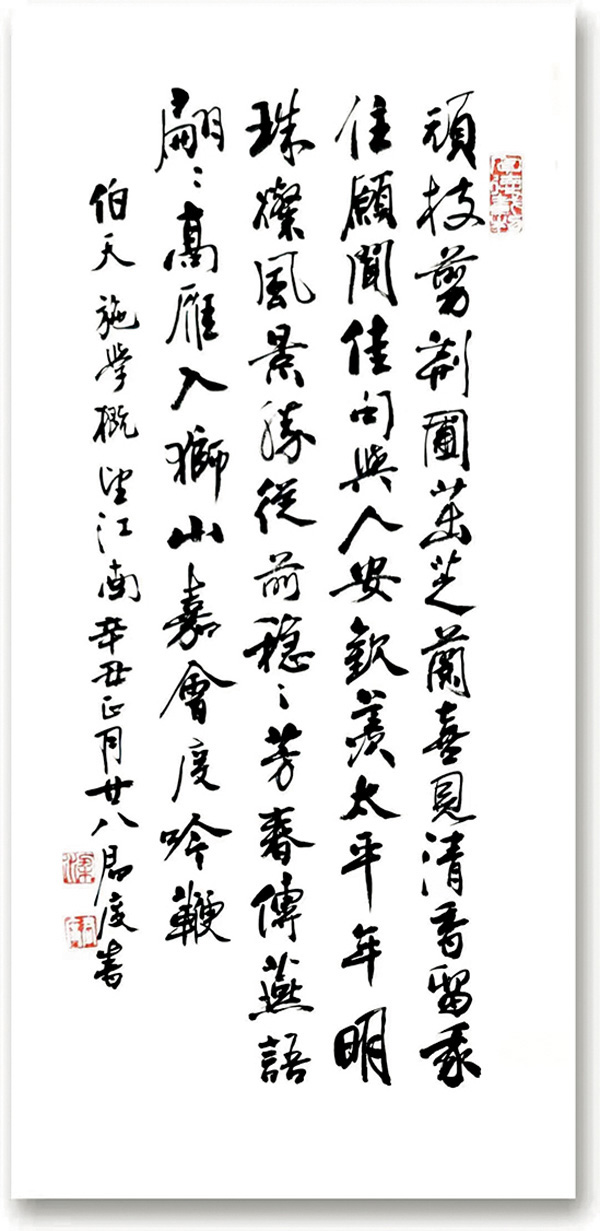 頑枝剪荊圃茁芝蘭喜見清香留我
住願聞佳句與人安歡羨太平年明
珠燦風景勝從前穩〻芳春傳燕語
翩〻高雁入獅山嘉會度吟鞭
伯天施學概望江南辛丑正月廿八周度書